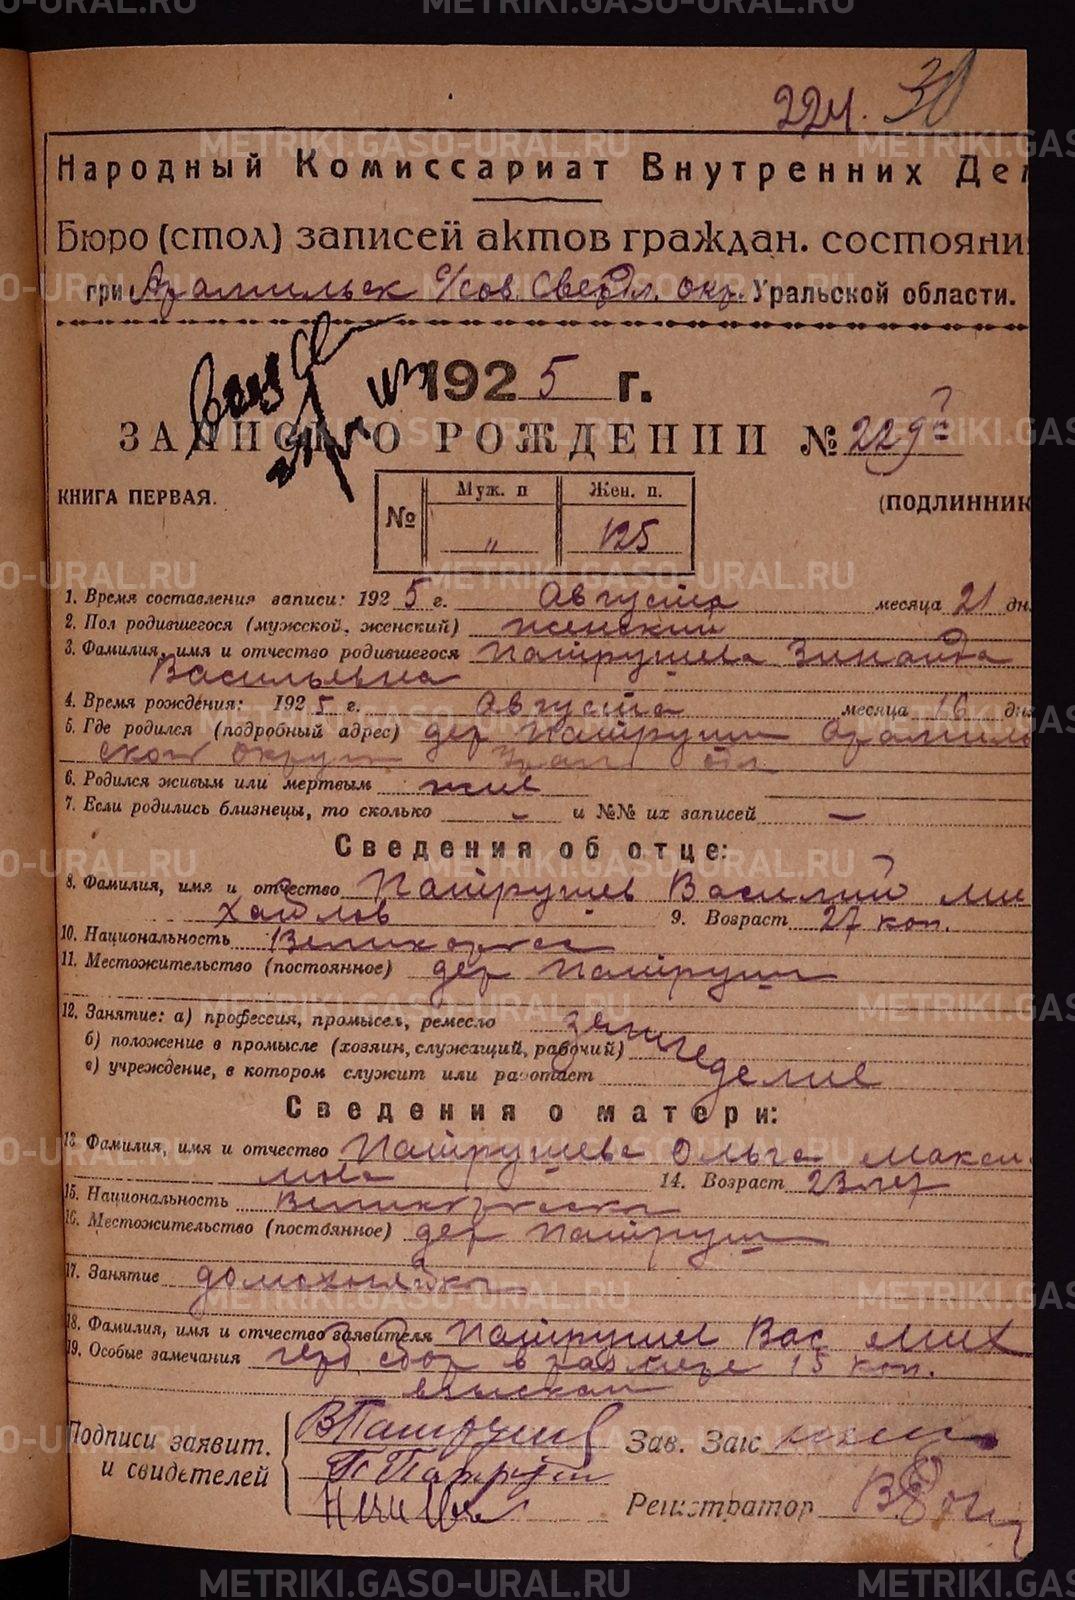 METRIKI.GASO-URAL.RU
224. 30
Народный Комиссариат Внутренних Дел
Бюро (стол) записей актов граждан. состояни
при Арамильск с/сов. Свердл. окр. Уральской области.
1925 г.
ЗАПИСЬ О РОЖДЕНИИ № 229
КНИГА ПЕРВАЯ. (ПОДЛИННИК
№ Муж. п Жен. п.
" 125
1. Время составления записи: 1925 г. Августа месяца 21 дн
2. Пол родившегося (мужской, женский) женский
3. Фамилия, имя и отчество родившегося Патрушева Зинаида
Васильевна
4. Время рождения: 1925 г. Августа месяца 16 дня
5. Где родился (подробный адрес) дер Патруши Арамиль
ской Урал обл
6. Родился живым или мертвым жив
7. Если родились близнецы, то сколько – и №№ их записей –
Сведения об отце:
8. Фамилия, имя и отчество Патрушев Василий Ми
хайлов 9. Возраст 27
10. Национальность Великоросс
11. Местожительство (постоянное) дер Патруши
12. Занятие: а) профессия, промысел, ремесло земле
б) положение в промысле (хозяин, служащий, рабочий)
в) учреждение, в котором служит или работает делие
Сведения о матери:
13. Фамилия, имя и отчество Патрушева Ольга Макси
мова 14. Возраст 23 лет
15. Национальность Великоросска
16. Местожительство (постоянное) дер Патруши
17. Занятие домохозяйка
18. Фамилия, имя и отчество заявителя Патрушев Вас Мих
19. Особые замечания герб сбор в размере 15 коп.
взыскан
Подписи заявит. ВПатрушев Зав. Загс
и свидетелей П Патруш
Регистратор